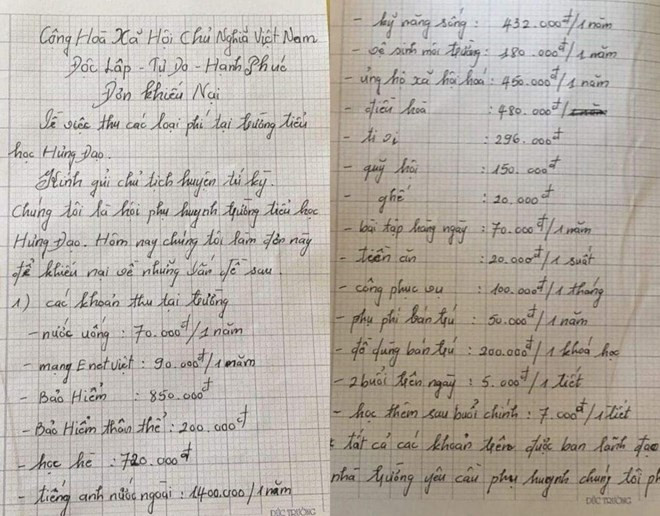 Cộng Hoà Xã Hội Chủ Nghĩa Việt Nam
Độc Lập - Tự Do - Hạnh Phúc
Đơn khiếu Nại
Về việc thu các loại phí tại trường tiểu
học Hưng Đạo.
Kính gửi chủ tịch huyện tứ kỳ.
Chúng tôi là hội phụ huynh trường tiểu học
Hưng Đạo. Hôm nay chúng tôi làm đơn này
để khiếu nại về những vấn đề sau.
1) các khoản thu tại trường
- nước uống : 70.000đ/1 năm
- mạng Enetviệt : 90.000đ/1 năm
- Bảo Hiểm : 850.000đ
- Bảo Hiểm thân thể : 200.000đ
- học hè : 720.000đ
- tiếng anh nước ngoài : 1400.000/1 năm
ĐỨC TRƯỜNG
- kỹ năng sống : 432.000đ/1 năm
- vệ sinh môi trường : 180.000đ/1 năm
- ủng hộ xã hội hoá : 450.000đ/1 năm
- điều hoà : 480.000đ/
- ti vi : 296.000đ
- quỹ hội : 150.000đ
- ghế : 20.000đ
- bài tập hàng ngày : 70.000đ/1 năm
- tiền ăn : 20.000đ/1 suất
- công phục vụ : 100.000đ/1 tháng
- phụ phí bán trú : 50.000đ/1 năm
- đồ dùng bán trú : 200.000đ/1 khoá học
- 2 buổi trên ngày : 5.000đ/1 tiết
- học thêm sau buổi chính : 7.000đ/1 tiết
tất cả các khoản trên được ban lãnh đạo
nhà trường yêu cầu phụ huynh chúng tôi ph
ĐỨC TRƯỜNG